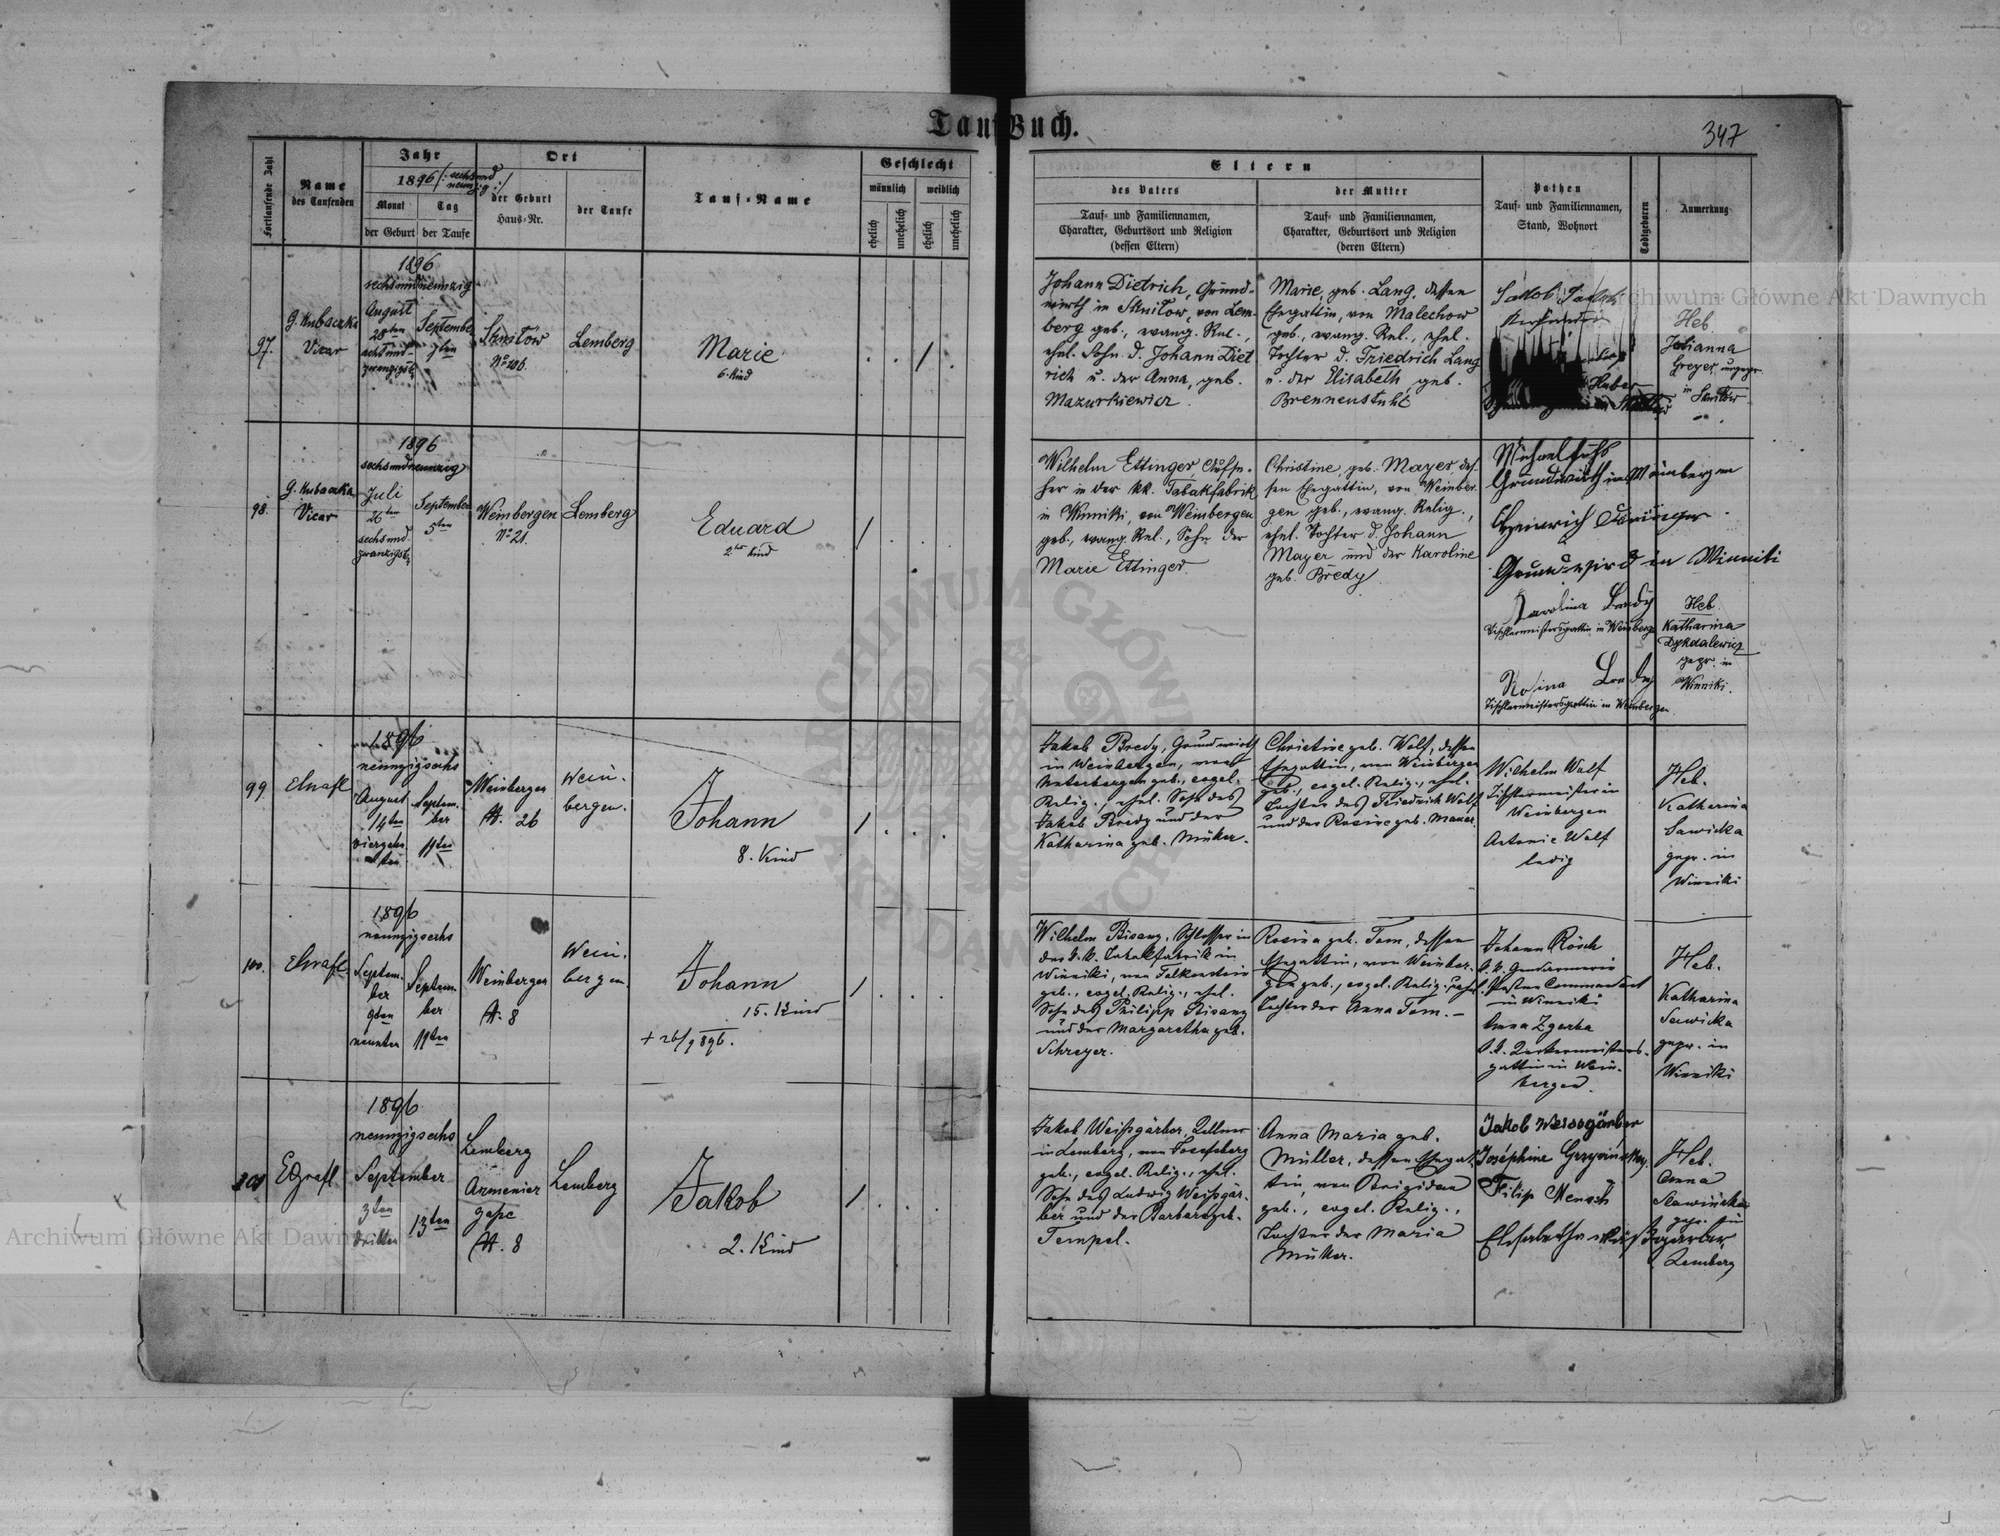 Tauf Buch.
347
Fortlaufende Zahl
Name
des Taufenden
Jahr
1896 /: sechsund
neunzig :/
Monat
Tag
der Geburt
der Taufe
Ort
der Geburt
Haus-Nr.
der Taufe
Tauf-Name
Geschlecht
männlich
weiblich
ehelich
unehelich
ehelich
unehelich
Eltern
des Vaters
Tauf- und Familiennamen,
Charakter, Geburtsort und Religion
(dessen Eltern)
der Mutter
Tauf- und Familiennamen,
Charakter, Geburtsort und Religion
(deren Eltern)
Pathen
Tauf- und Familiennamen,
Stand, Wohnort
Todtgeboren
Anmerkung
97.
G. Kubaczka
Vicar
1896
sechsundneunzig
August
28ten
achtund-
zwanzigst.
September
7ten
Skniłow
No 206.
Lemberg
Marie
6. Kind
Johann Dietrich, Grund-
wirth in Skniłow, von Lem-
berg geb., evang. Rel.,
ehel. Sohn d. Johann Diet
rich u. der Anna, geb.
Mazurkiewicz
Marie, geb. Lang, dessen
Ehegattin, von Malechow
geb., evang. Rel., ehel.
Tochter d. Friedrich Lang
u. der Elisabeth geb.
Brennenstuhl
Jakob
Huber
Heb.
Julianna
Greyer, ungepr.
in Skniłow
98.
G. Kubaczka
Vicar
1896
sechsundneunzig
Juli
26ten
sechsund-
zwanzigst.
September
5ten
Weinbergen
No 21.
Lemberg
Eduard
2tes Kind
Wilhelm Ettinger Aufse-
her in der kk. Tabakfabrik
in Winniki, von Weinbergen
geb., evang. Rel., Sohn der
Marie Ettinger.
Christine, geb. Mayer, des-
sen Ehegattin, von Weinber-
gen geb., evang. Relig.,
ehel. Tochter d. Johann
Mayer und der Karoline
geb. Bredy
Michael
Grundwirth in Weinbergen
Heinrich
Grundwird in Winniki
Karolina Bredy
Tischlermeistersgattin in Weinberg
Rosina Bredy
Tischlermeistersgattin in Weinbergen
Heb.
Katharina
gepr. in
Winniki.
99
Ehrafl
1896
neunzigsechs
August
14ten
vierzehn-
ten
Septem-
ber
11ten
Weinbergen
N. 26
Wein-
bergen.
Johann
8. Kind
Jakob Bredy, Grundwirth
in Weinbergen, von
Unterbergen geb., evgel.
Relig., ehel. Sohn des
Jakob Bredy und der
Katharina geb. Müller.
Christine geb. Wolf, dessen
Ehegattin, von Weinbergen
geb., evgel. Relig., ehel.
Tochter des Friedrich Wolf
und der Rosine geb. Mauer.
Wilhelm Wolf
Tischlermeister in
Weinbergen
Antonie Wolf
ledig
Heb.
Katharina
Sawicka
gepr. in
Winniki
100.
Ehrafl
1896
neunzigsechs
Septem-
ber
9ten
neunten
Septem
ber
11ten
Weinbergen
N. 8
Wein-
bergen.
Johann
15. Kind
+ 26/9 896.
Wilhelm Bisanz, Schlosser in
der k.k. Tabakfabrik in
Winniki, von Falkenstein
geb., evgel. Relig., ehel.
Sohn des Philipp Bisanz
und der Margaretha geb.
Schreyer.
Rosina geb. Tom, dessen
Ehegattin, von Weinber-
gen geb., evgel. Relig., ehel.
Tochter der Anna Tom. –
Johann Rösch
k. k. Gendarmerie
Posten Commandant
in Winniki
Anna Zgarba
gattin in Wein-
bergen.
Heb.
Katharina
Sawicka
gepr. in
Winniki
101
Ehrafl
1896
neunzigsechs
September
3ten
dritten
13ten
Lemberg
Armenier
gasse
N. 8
Lemberg
Jakob
2. Kind
Jakob Weißgärber, Kellner
in Lemberg, von Josefsberg
geb., evgel. Relig., ehel.
Sohn des Ludwig Weißgär-
ber und der Barbara geb.
Tempel.
Anna Maria geb.
Müller, dessen Ehegat-
tin, von Brigidau
geb., evgel. Relig.,
Tochter der Maria
Müller.
Jakob Weissgärber
Joséphine
Filip Mensch
Elisabetha Weißgärber
Heb.
Anna
Sławińska
gepr. in
Lemberg
Archiwum Główne Akt Dawnych
Archiwum Główne Akt Dawnych
ARCHIWUM GŁÓWNE
AKT DAWNYCH